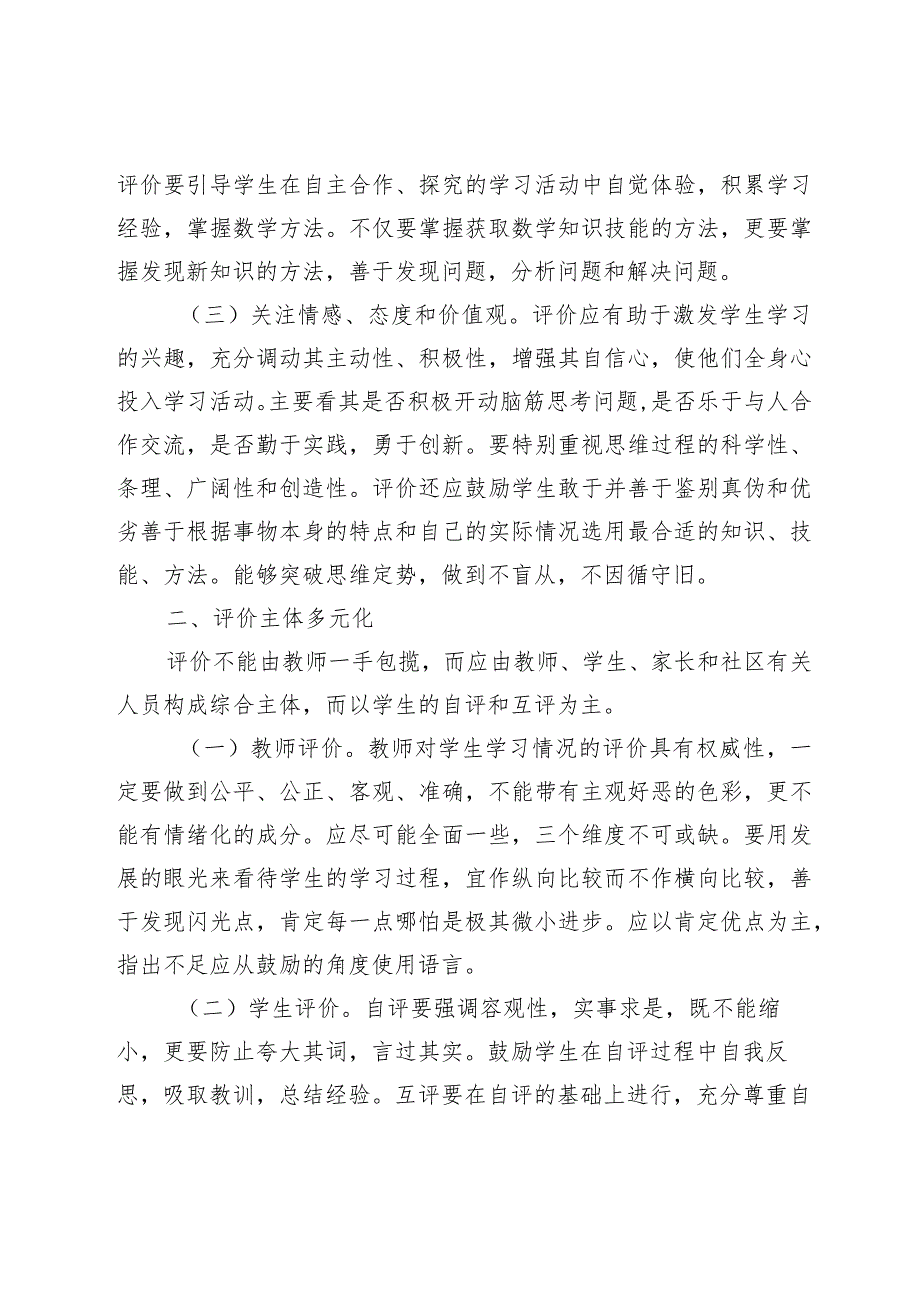 评价要引导学生在自主合作、探究的学习活动中自觉体验，积累学习
经验，掌握数学方法。不仅要掌握获取数学知识技能的方法，更要掌
握发现新知识的方法，善于发现问题，分析问题和解决问题。
（三）关注情感、态度和价值观。评价应有助于激发学生学习
的兴趣，充分调动其主动性、积极性，增强其自信心，使他们全身心
投入学习活动。主要看其是否积极开动脑筋思考问题,是否乐于与人合
作交流，是否勤于实践，勇于创新。要特别重视思维过程的科学性、
条理、广阔性和创造性。评价还应鼓励学生敢于并善于鉴别真伪和优
劣善于根据事物本身的特点和自己的实际情况选用最合适的知识、技
能、方法。能够突破思维定势，做到不盲从，不因循守旧。
二、评价主体多元化
评价不能由教师一手包揽，而应由教师、学生、家长和社区有关
人员构成综合主体，而以学生的自评和互评为主。
（一）教师评价。教师对学生学习情况的评价具有权威性，一
定要做到公平、公正、客观、准确，不能带有主观好恶的色彩，更不
能有情绪化的成分。应尽可能全面一些，三个维度不可或缺。要用发
展的眼光来看待学生的学习过程，宜作纵向比较而不作横向比较，善
于发现闪光点，肯定每一点哪怕是极其微小进步。应以肯定优点为主，
指出不足应从鼓励的角度使用语言。
（二）学生评价。自评要强调容观性，实事求是，既不能缩
小，更要防止夸大其词，言过其实。鼓励学生在自评过程中自我反
思，吸取教训，总结经验。互评要在自评的基础上进行，充分尊重自